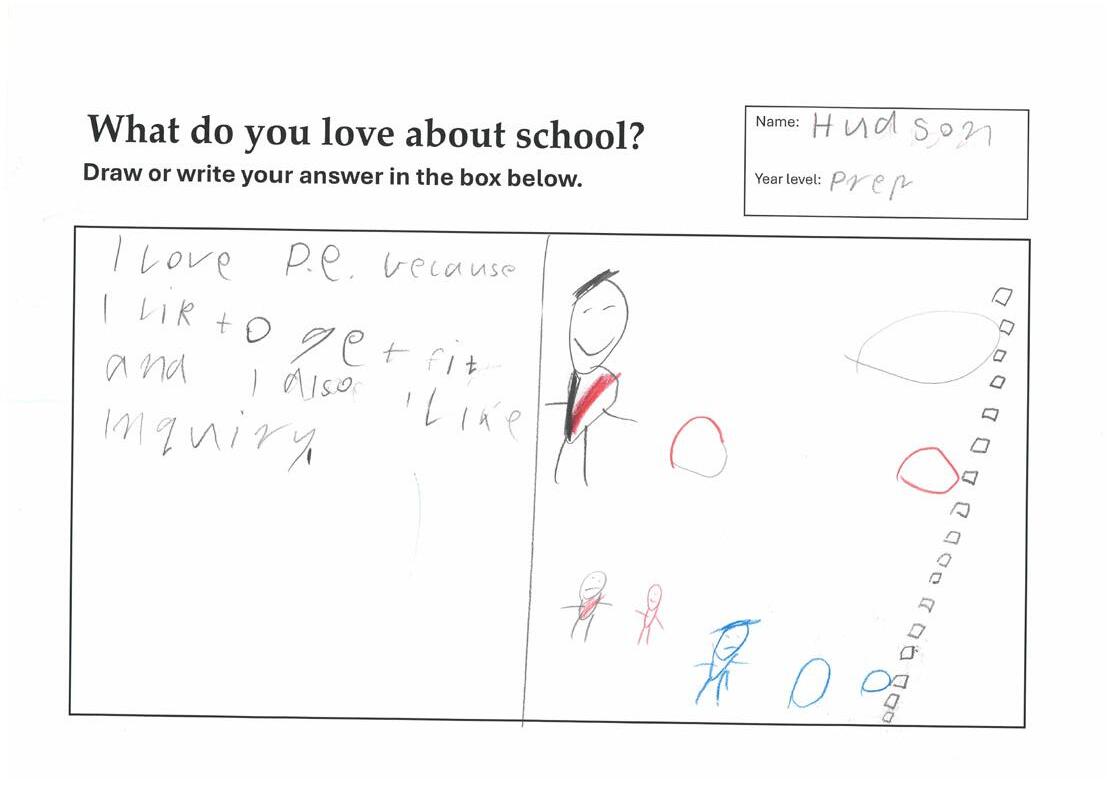 What do you love about school?
Draw or write your answer in the box below.
Name: Hudson
Year level: Prep
I Love P.e. because
I Lik to get fit
and I also Like
Inquiry.